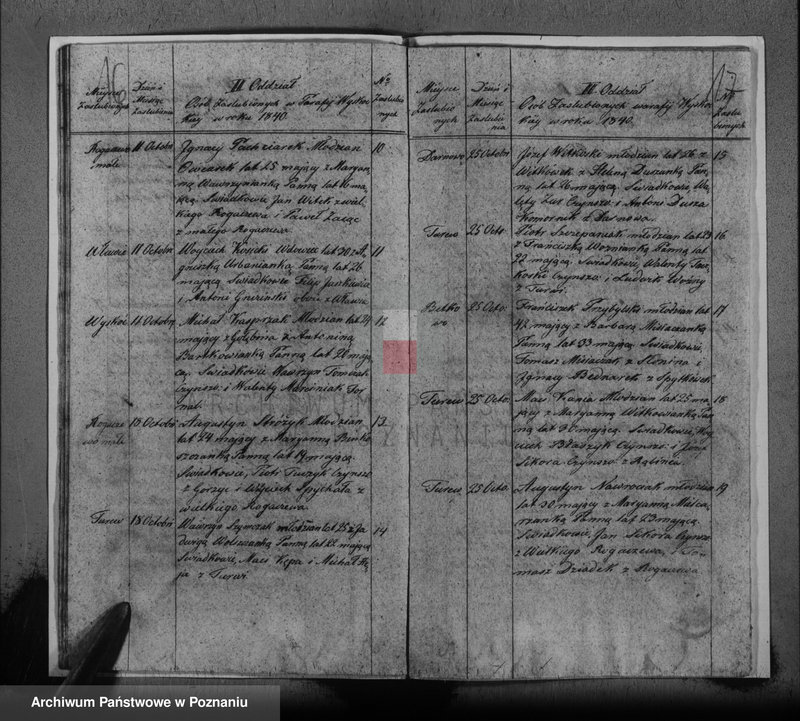 16
Miejsce Zaslubionych
Dzień i Miesiąc Zaslubienia
II Oddział
Osób Zaslubionych w Parafij Wyskoć
Kiéy w roku 1840.
No Zaslubionych
Rogaczewo małe
11 Octobr
Ignacy Młodzian
Owczarek lat 25 mający z Maryan
ną Wawrzyniankąą Panną lat 16 ma
jącą. Swiadkowie Jan Witek z wiel
kiego Rogaczewa i Paweł Zając
z małego Rogaczewa.
10
11 Octobr
Woyciech Kosicki Wdowiec lat 30 z A
gneszką Urbanianką Panną lat 26
mającą Swiadkowie Filip
i Antoni oboie z
11
Wyskoć
11 Octobr
Michał Kasprzak Młodzian lat 24
mający z Gołębina z Antoniną
Bartkowianką Panną lat 20 mają
cą. Swiadkowie Wawrzyn Tomczak
Czynszo: i Walenty Marciniak For
nal.
12
Rogacze wo małe
18 Octobr
Augustyn Stróżyk Młodzian
lat 24 mający z Maryanną
Panną lat 19 mającą.
Swiadkowie, Piotr Tuczyk Czynszo
z Gorzyc i Woyciech Spychała z
wielkiego Rogaczewa.
13
Turew
18 Octobr
Wawrzyn Szymczak młodzian lat 25 z Ja
dwigą Panną lat 22 mającą
Swiadkowie, Maci Kępa i Michał
z Turwi.
14
17
Miejsce Zaslubionych
Dzień i Miesiąc Zaslubienia
II Oddział
Osób Zaslubionych w Parafij Wysko
Kiéy w roku 1840.
No Zaslubionych
Darnowo
25 Octobr
Józef Witkoski młodzian lat 26 z
Witkówek z Heleną Duszanką Pan
ną lat 26 mającą. Swiadkowie, Wa
lęty Czynszo: i Antoni Dusza
Komornik z Darnowa.
15
Turew
25 Octo.
Piotr Szczepaniak młodzian lat 23
z Franciszką Woznianką Panną lat
22 mającą. Swiadkowie, Walenty
Czynszo: i Ludwik Woźny
z Turwi.
16
Betkowo
25 Octo.
Franciszek Przybylski młodzian lat
42 mający z Barbarą Misiaczanką
Panną lat 33 mającą. Swiadkowie,
Tomasz Misiaczak z Słonina i
Ignacy Bednarek z Spytkówek
17
Turew
25 Octo.
Maci Kania Młodzian lat 25 ma
jący z Maryanną Witkowianką Pan
ną lat 30 mającą. Swiadkowie, Woy
ciech Błaszyk Czynszo: i Józef
Sikora Czynszo z Rąbinia.
18
Turew
25 Octo.
Augustyn Nawrociak młodzian
lat 30 mający z Maryanną
Panną lat 23 mającą.
Swiadkowie, Jan Sikora Czynszo
z Wielkiego Rogaczewa, i To
masz Dziadek z Rogaczewa
19
Archiwum Państwowe w Poznaniu